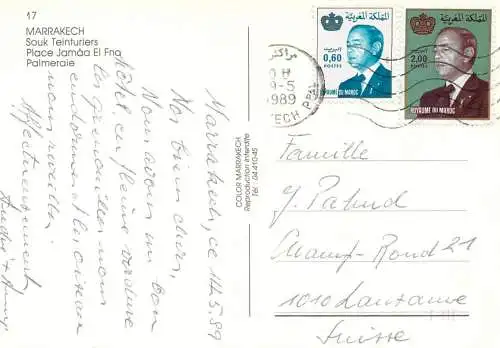 17
MARRAKECH
Souk Teinturiers
Place Jamâa El Fna
Palmeraie
Marrakech, ce 14.5.89
Nos biens chers,
Nous avons un bon
hôtel en pleine verdure
les grenouilles nous
endorment, les oiseaux
nous réveillent.
Affectueusement,
André +
COLOR MARRAKECH
Reproduction interdite
Tél : 04.410-45
المملكة المغربية
البريد
0,60
POSTES
ROYAUME DU MAROC
المملكة المغربية
البريد
2,00
POSTES
ROYAUME DU MAROC
مراكش
1989
Famille
J. Pahud
Champ-Rond 21
1010 Lausanne
Suisse